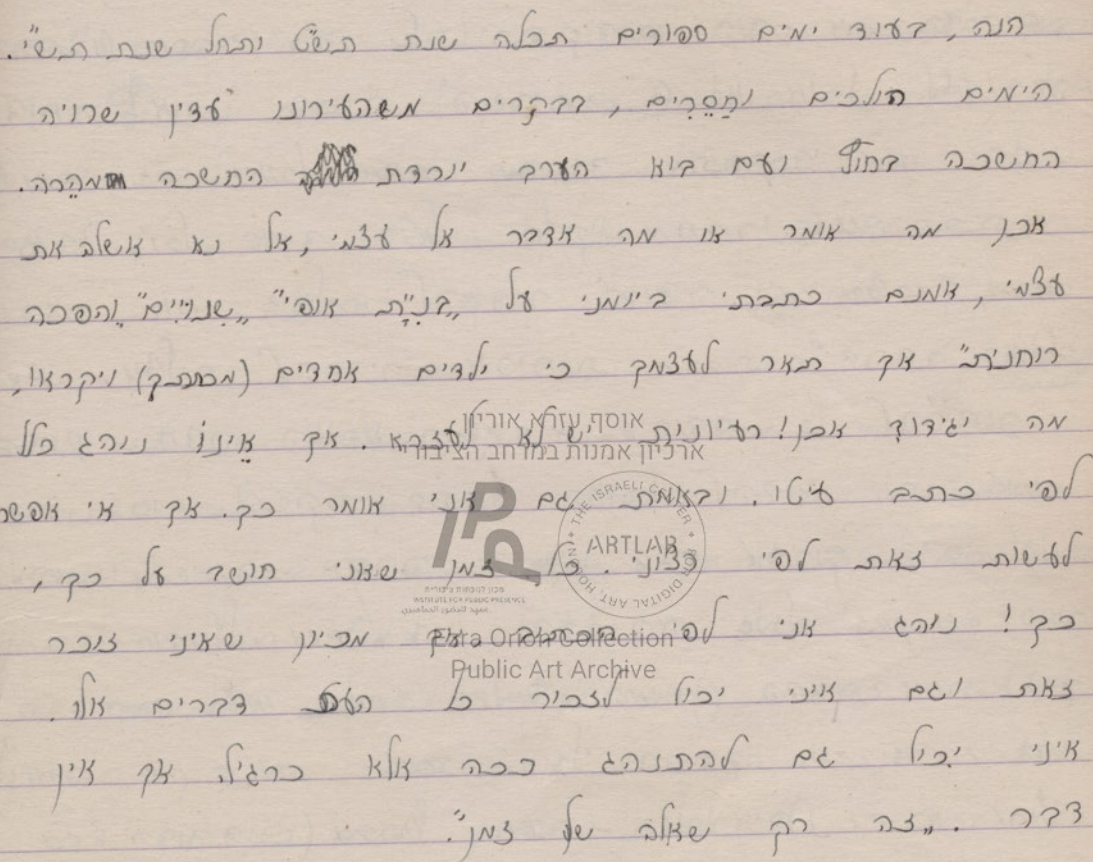 הנה, בעוד ימים ספורים תכלה שנת תש"ט ותחל שנת תש"י.
הימים הולכים וחסרים, בבקרים משהעירונו עדין שרויה
החשכה בחוץ ועם בוא הערב יורדת החשכה מהרה.
אכן מה אומר או מה אדבר אל עצמי, אל נא אשלה את
עצמי, אמנם כתבתי ביומני על "בנית אופי" "שנויים" "והפכה
רוחנית" אך תאר לעצמך כי ילדים אחדים ויקראו,
מה יגידו? אכן! רעיונית יש לא לעזרא. אך אינו נוהג כלל
לפי כתב עיטו. ובאמת גם אני אומר כך. אך אי אפשר
לעשות זאת לפי רצוני. כל זמן שאני חושב על כך,
כך! נוהג אני לפי אך מכיון שאיני זוכר
זאת וגם איני יכול לזכור כל העת דברים אלו.
איני יכול גם להתנהג ככה אלא כרגיל. אך אין
דבר. "זה רק שאלה של זמן".
אוסף עזרא אוריון
ארכיון אמנות במרחב הציבורי
IPP
מכון לנוכחות ציבורית
INSTITUTE FOR PUBLIC PRESENCE
THE ISRAELI CENTER FOR DIGITAL ART, HOLON
ARTLAB
Ezra Orion Collection
Public Art Archive